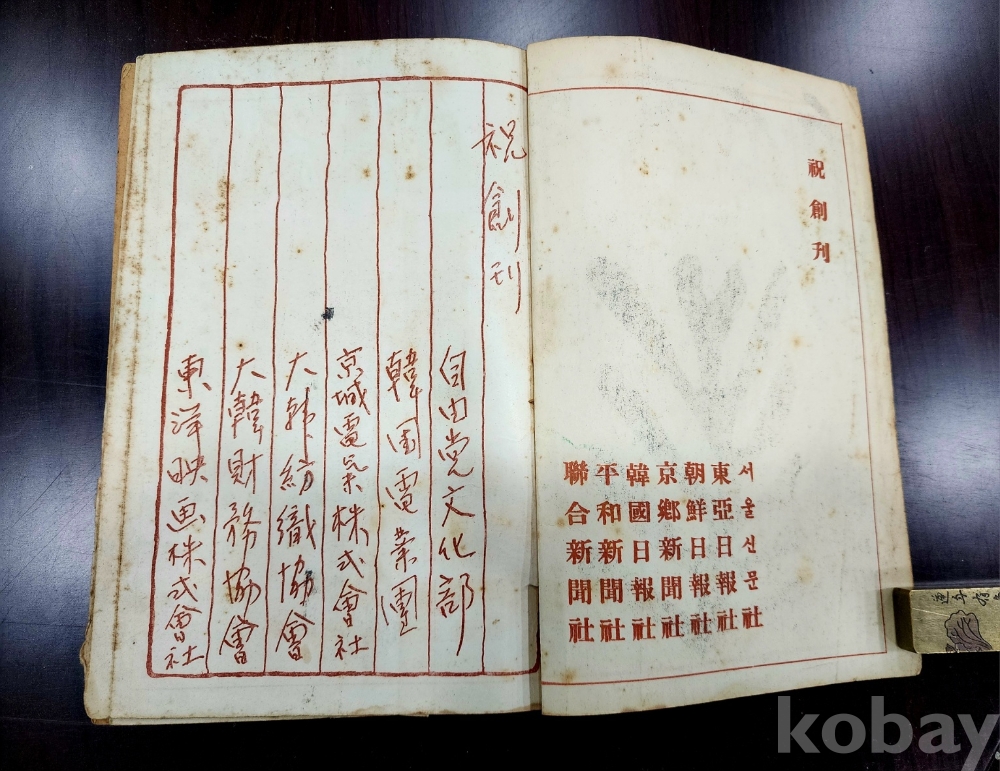 祝創刊
서울신문社
東亞日報社
朝鮮日報社
京鄉新聞社
韓國日報社
平和新聞社
聯合新聞社
祝創刊
自由党文化部
韓国電業團
京城電業株式會社
大韓紡織協會
大韓財務協會
東洋映画株式會社
kobay